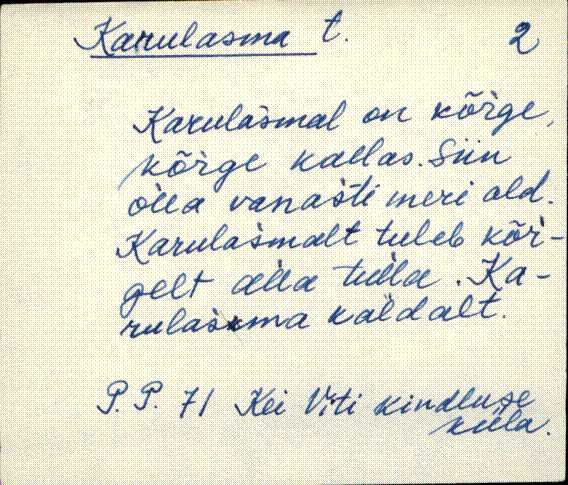 Karulasma t. 2
Karulasmal on kõrge,
kõrge kallas. Siin
olla vanasti meri old.
Karulasmalt tuleb kõr-
gelt alla tulla. Ka-
rulasma kaldalt.
P. P. 71 Kei Viti kindluse
küla.